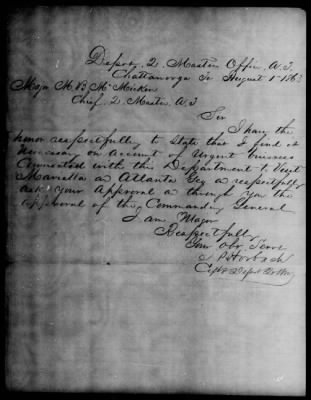 Depot, Q. Masters Office, A. T.
Chattanooga Te August 1st 1863
Major M. B. McMicken
Chief Q. Master A. T.
Sir
I have the
honor respectfully to state that I find it
necessary on account of Urgent business
Connected with this Department to Visit
Marietta & Atlanta Geo & respectfully
ask your Approval & through you the
approval of the Commanding General
I am Major
Respectfully
Your Obt Servt
Capt & Depot Qr Mr